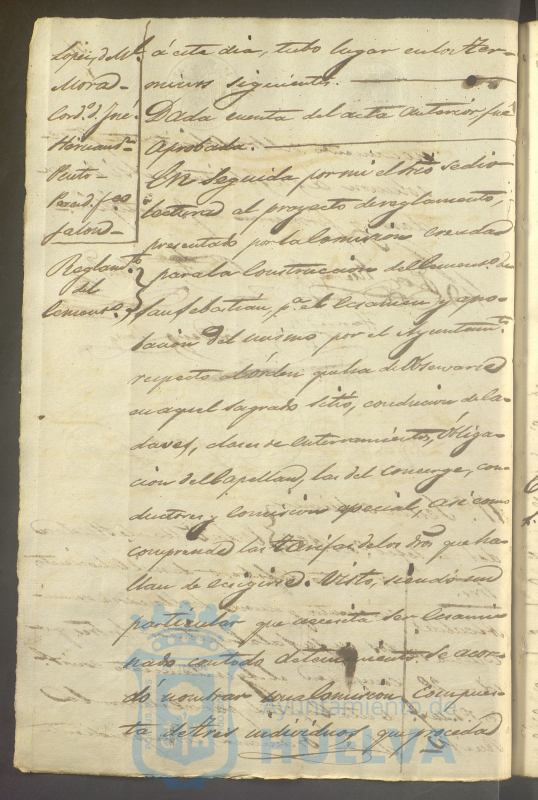 Lopez, de M.l
Mora
Cord.o d. José
Hernand.z
Pinto
Parcid. fco
Jalon
Reglam.to
del
Cement.o
á este dia, tubo lugar en los ter-
minos siguientes.
Dada cuenta del acta anterior fué
aprobada.
En seguida por mi el Srio se dio
lectura al proyecto de reglamento,
presentado por la Comision creada
para la Construccion del Cement.o de
San Sebastian, p.a el Ecsamen y apro-
bacion del mismo por el Ayuntam.to
respecto al órden que ha de Observarse
en aquel sagrado sitio, conduccion de ca-
daveres, clases de Enterramientos, Obliga-
cion del Capellan, las del Concerge, con-
ductores y Comision especial, asi como
comprende las tarifas de los dros que ha-
llan de ecsigirse. Visto, siendo un
particular que necesita ser Ecsami-
nado con todo detenimiento se acor-
dó nombrar una Comision compues-
ta de tres individuos que proceda
Ayuntamiento de
HUELVA